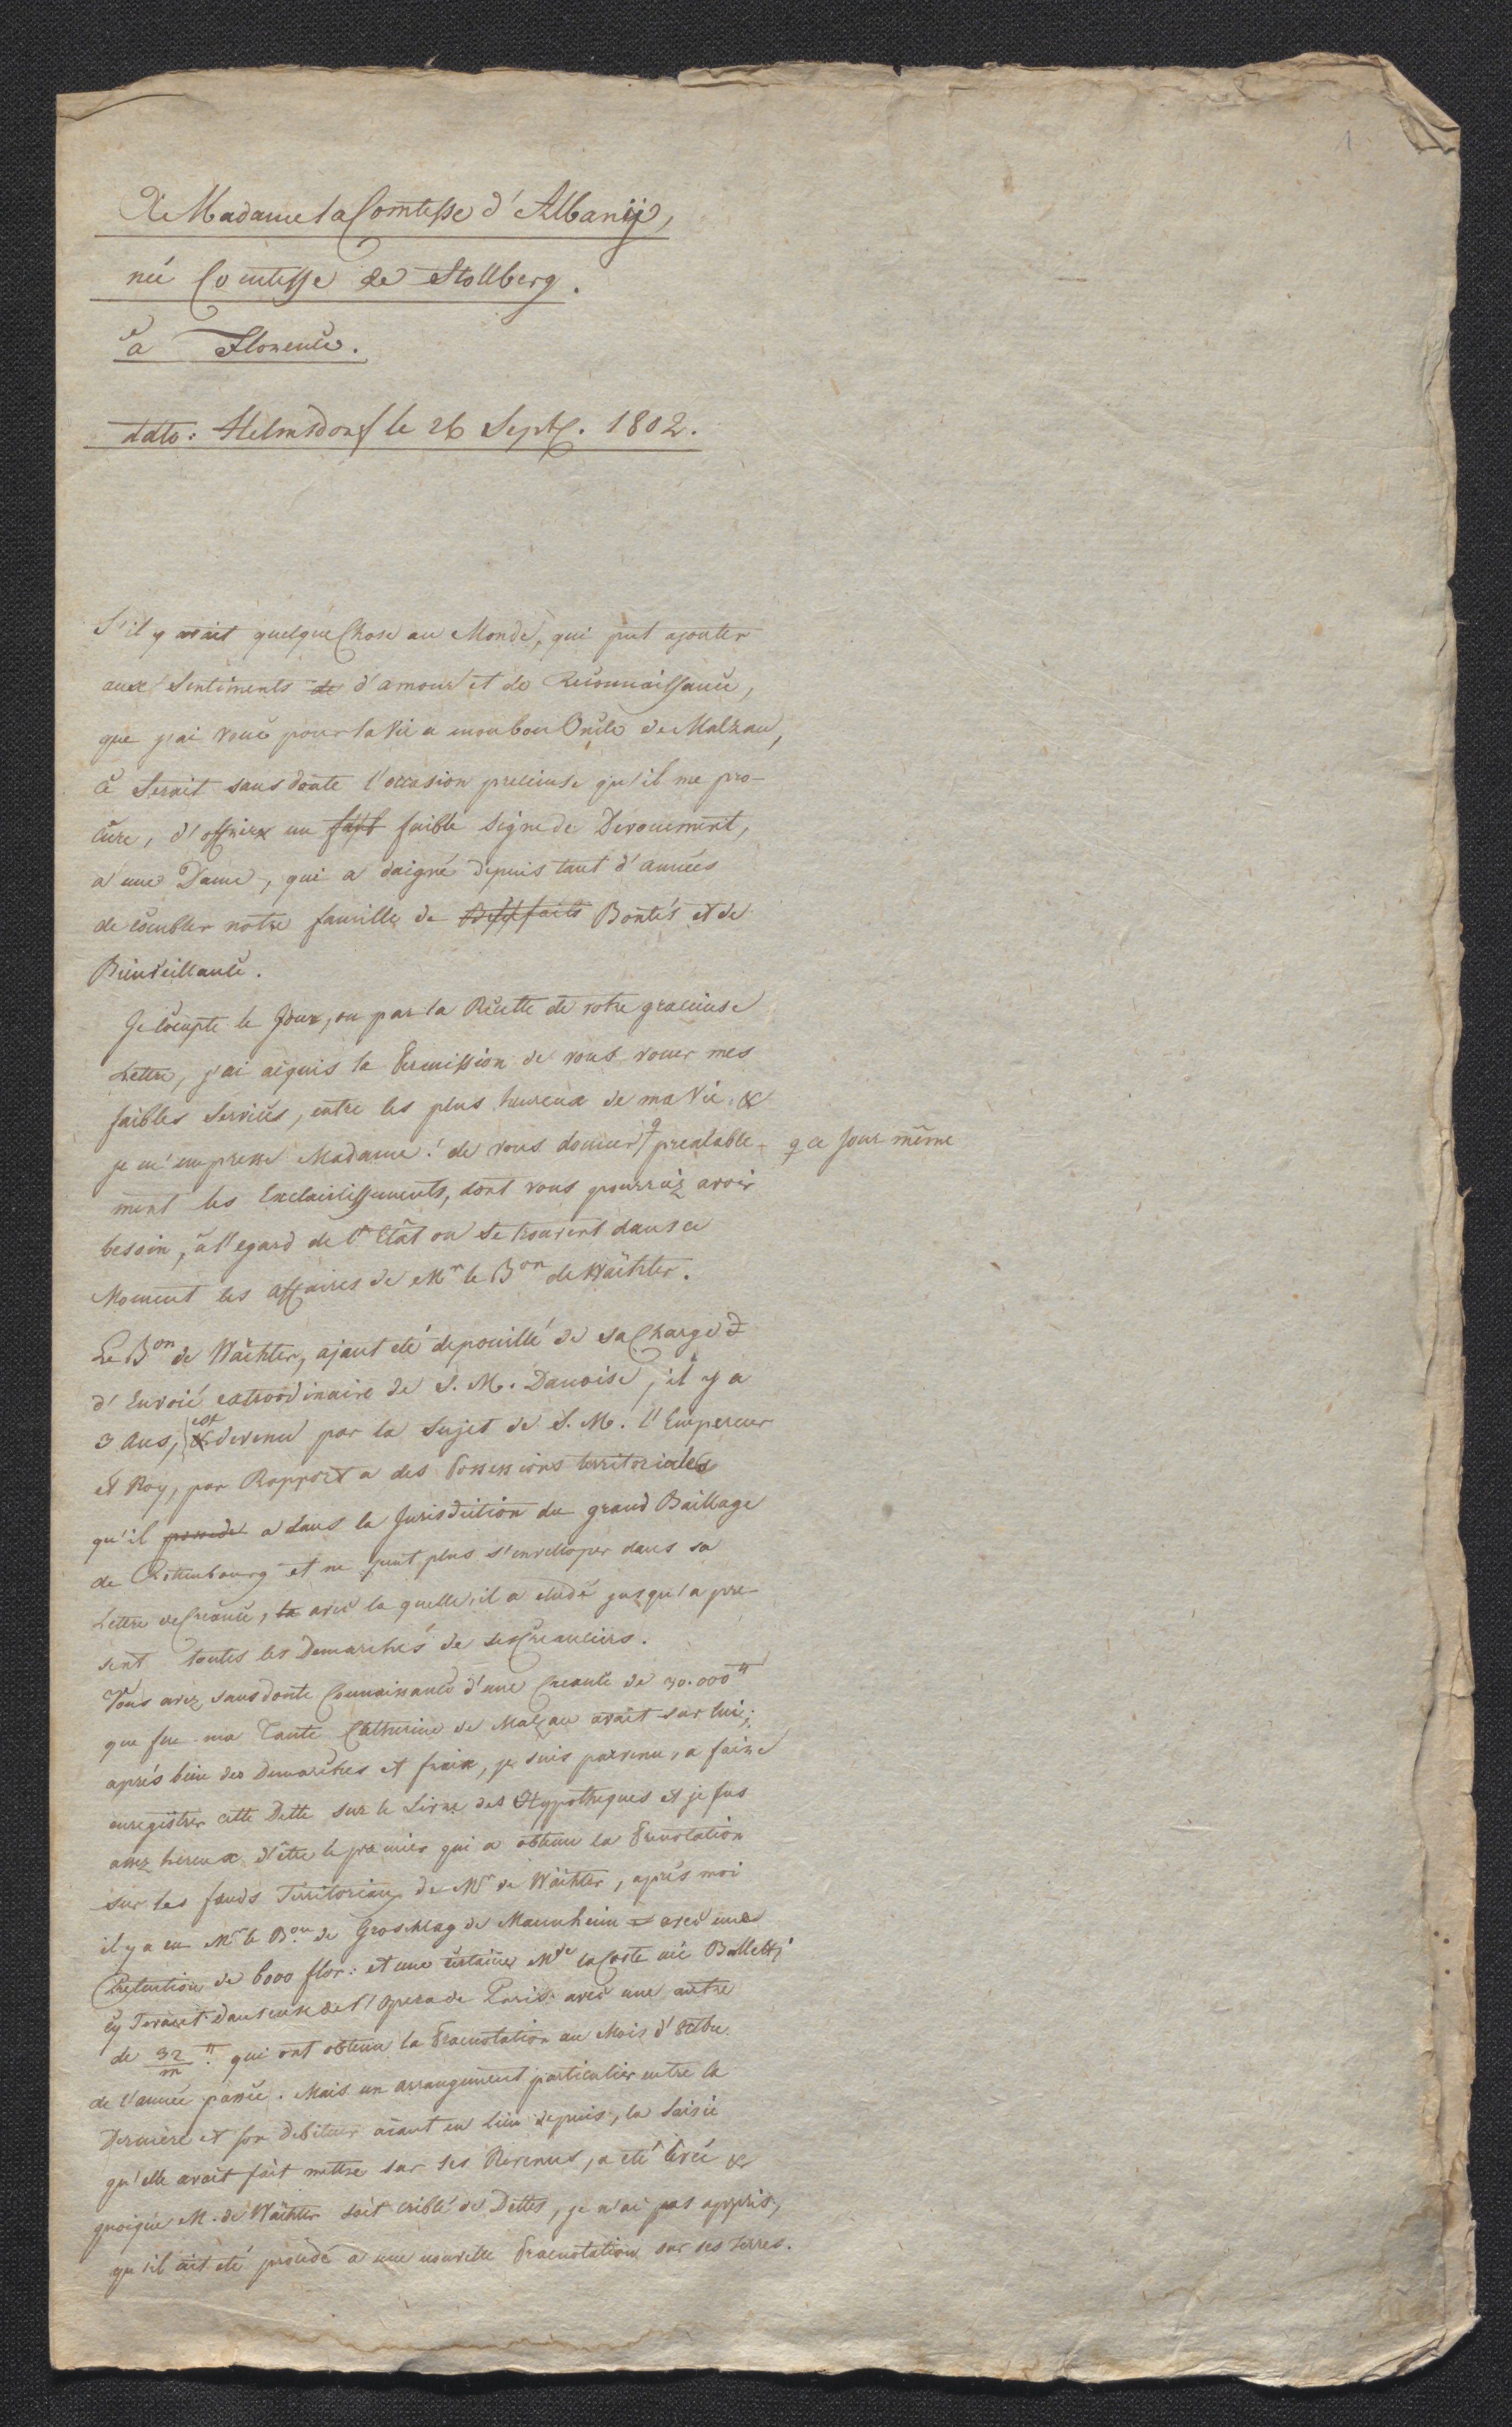 1
A Madame la Comtesse d'Albanÿ,
née Comtesse de Stollberg.
à Florence.
dato: Helmsdorf le 26 Septb. 1802.
S'il y avait quelque Chose au Monde, qui put ajouter
aux Sentiments de d'amour et de Reconnaissance,
que j'ai voué pour la Vie a mon bon Oncle de Malzau,
ce Serait sans doute l'occasion precieuse qu'il me pro-
cure, d'offrir un faible Signe de Devouement,
a une Dame, qui a daigné depuis tant d'années
de combler notre famille de Bontés et de
Bienveillance.
Je Compte le Jour, ou par la Recette de votre gracieuse
Lettre, j'ai acquis la Permission de vous vouer mes
faibles Services, entre les plus heureux de ma Vie &
je m'empresse Madame! de vous donner prealable- ce Jour même
ment les Eclaircissements, dont vous pourriez avoir
besoin, à l'egard de l'Etât ou se trouvent dans ce
Moment les affaires de Mr le Bon de Wächter.
Le Bon de Wächter, ajant eté depouillé de sa Charge
d'Envoié extraordinaire de S. M. Danoise, il y a
3 Ans, est devenu par la Sujet de S. M. l'Empereur
et Roy, par Rapport a des Possessions territoriales
qu'il possede a dans la Jurisdiction du grand Baillage
de Rottenbourg et ne peut plus s'envelloper dans sa
Lettre de Creance, la avec la quelle, il a eludé jusqu'a pre-
sent toutes les Demarches de ses Creanciers.
Vous avez sans doute Connaissance d'une Creance de 30.000 "
que feu ma Tante Catherine de Malzau avait sur lui;
aprés bien des Demarches et fraix, je suis parvenu, a faire
enregistrer cette Dette sur le Livre des Hypotheques et je fus
assez hereux d'être le premier qui a obtenu la Prenotation
sur les fonds Territoriaux de Mr de Wächter, aprés moi
il y a eu Mr le Bon de Groschlag de Mannheim avec une
Pretention de 6000 flor: et une certaine Mde la Coste née Balletti
cy devant danseuse de l'Opera de Paris avec une autre
de 32/m " qui ont obtenu la Praenotation au Mois d'8cbre
de l'année passée. Mais un arrangement particulier entre la
Derniere et son Debiteur aiant eu lieu depuis, la Saisie
qu'elle avait fait mettre sur ses Revenus, a eté levée &
quoique M. de Wächter soit criblé de Dettes, je n'ai pas appris,
qu'il ait eté procedé a une nouvelle Praenotation sur ses terres.